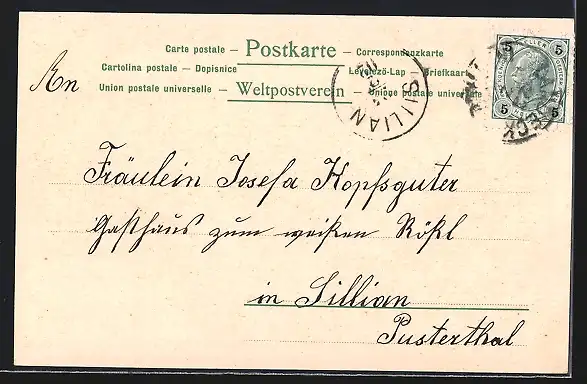 Carte postale — Postkarte — Correspondenzkarte
Cartolina postale — Dopisnice Levelező-Lap — Briefkaart
Union postale universelle — Weltpostverein — Unione postale universale
An
5 5
HELLER
5 5
SILLIAN
Fräulein Josefa Kopfsguter
Gasthaus zum weißen Rößl
in Sillian
Pusterthal